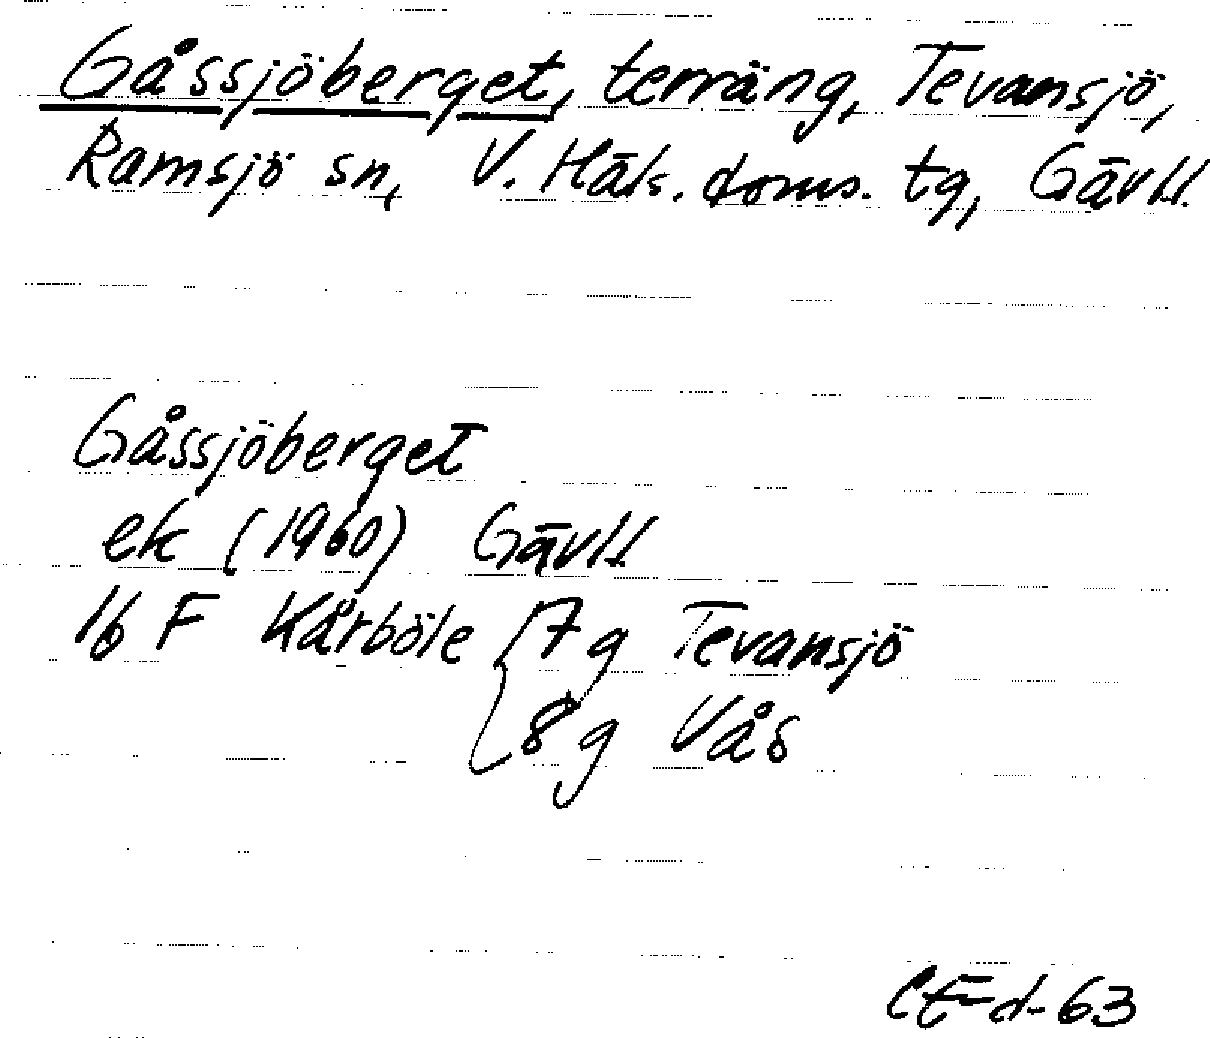 Gåssjöberget, terräng, Tevansjö,
Ramsjö sn, V. Häls. doms. tg, Gävll.
Gåssjöberget
ek (1960) Gävll
16 F Kårböle 7 g Tevansjö
8 g Vås
d-63